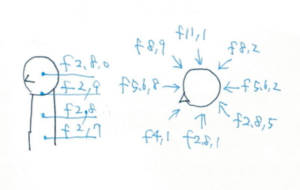 f2,8,0
f2,9
f2,8
f2,7
f11,1
f8,9
f8,2
f5,6,8
f5,6,2
f4,1
f2,8,1
f2,8,5